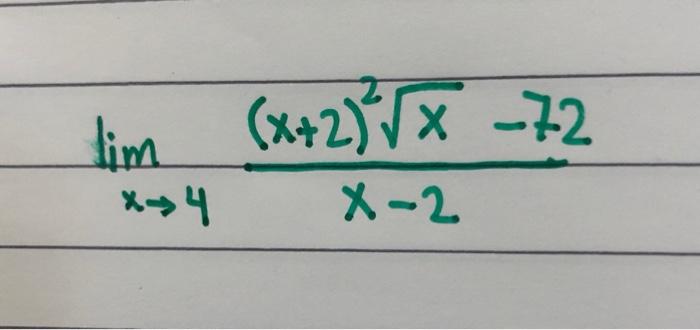 lim x→4 (x+2)²√x -72
x-2